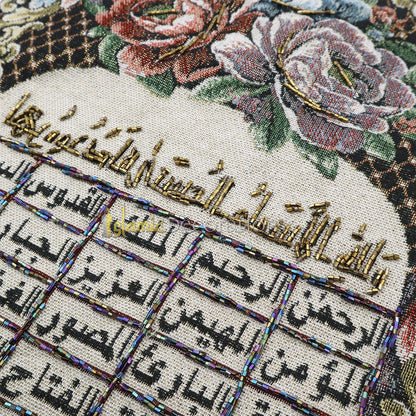 ولله الأسماء الحسنى فادعوه بها
الرحمن الرحيم الملك القدوس
المؤمن المهيمن العزيز الجبار
البارئ المصور
الفتاح
Islamic